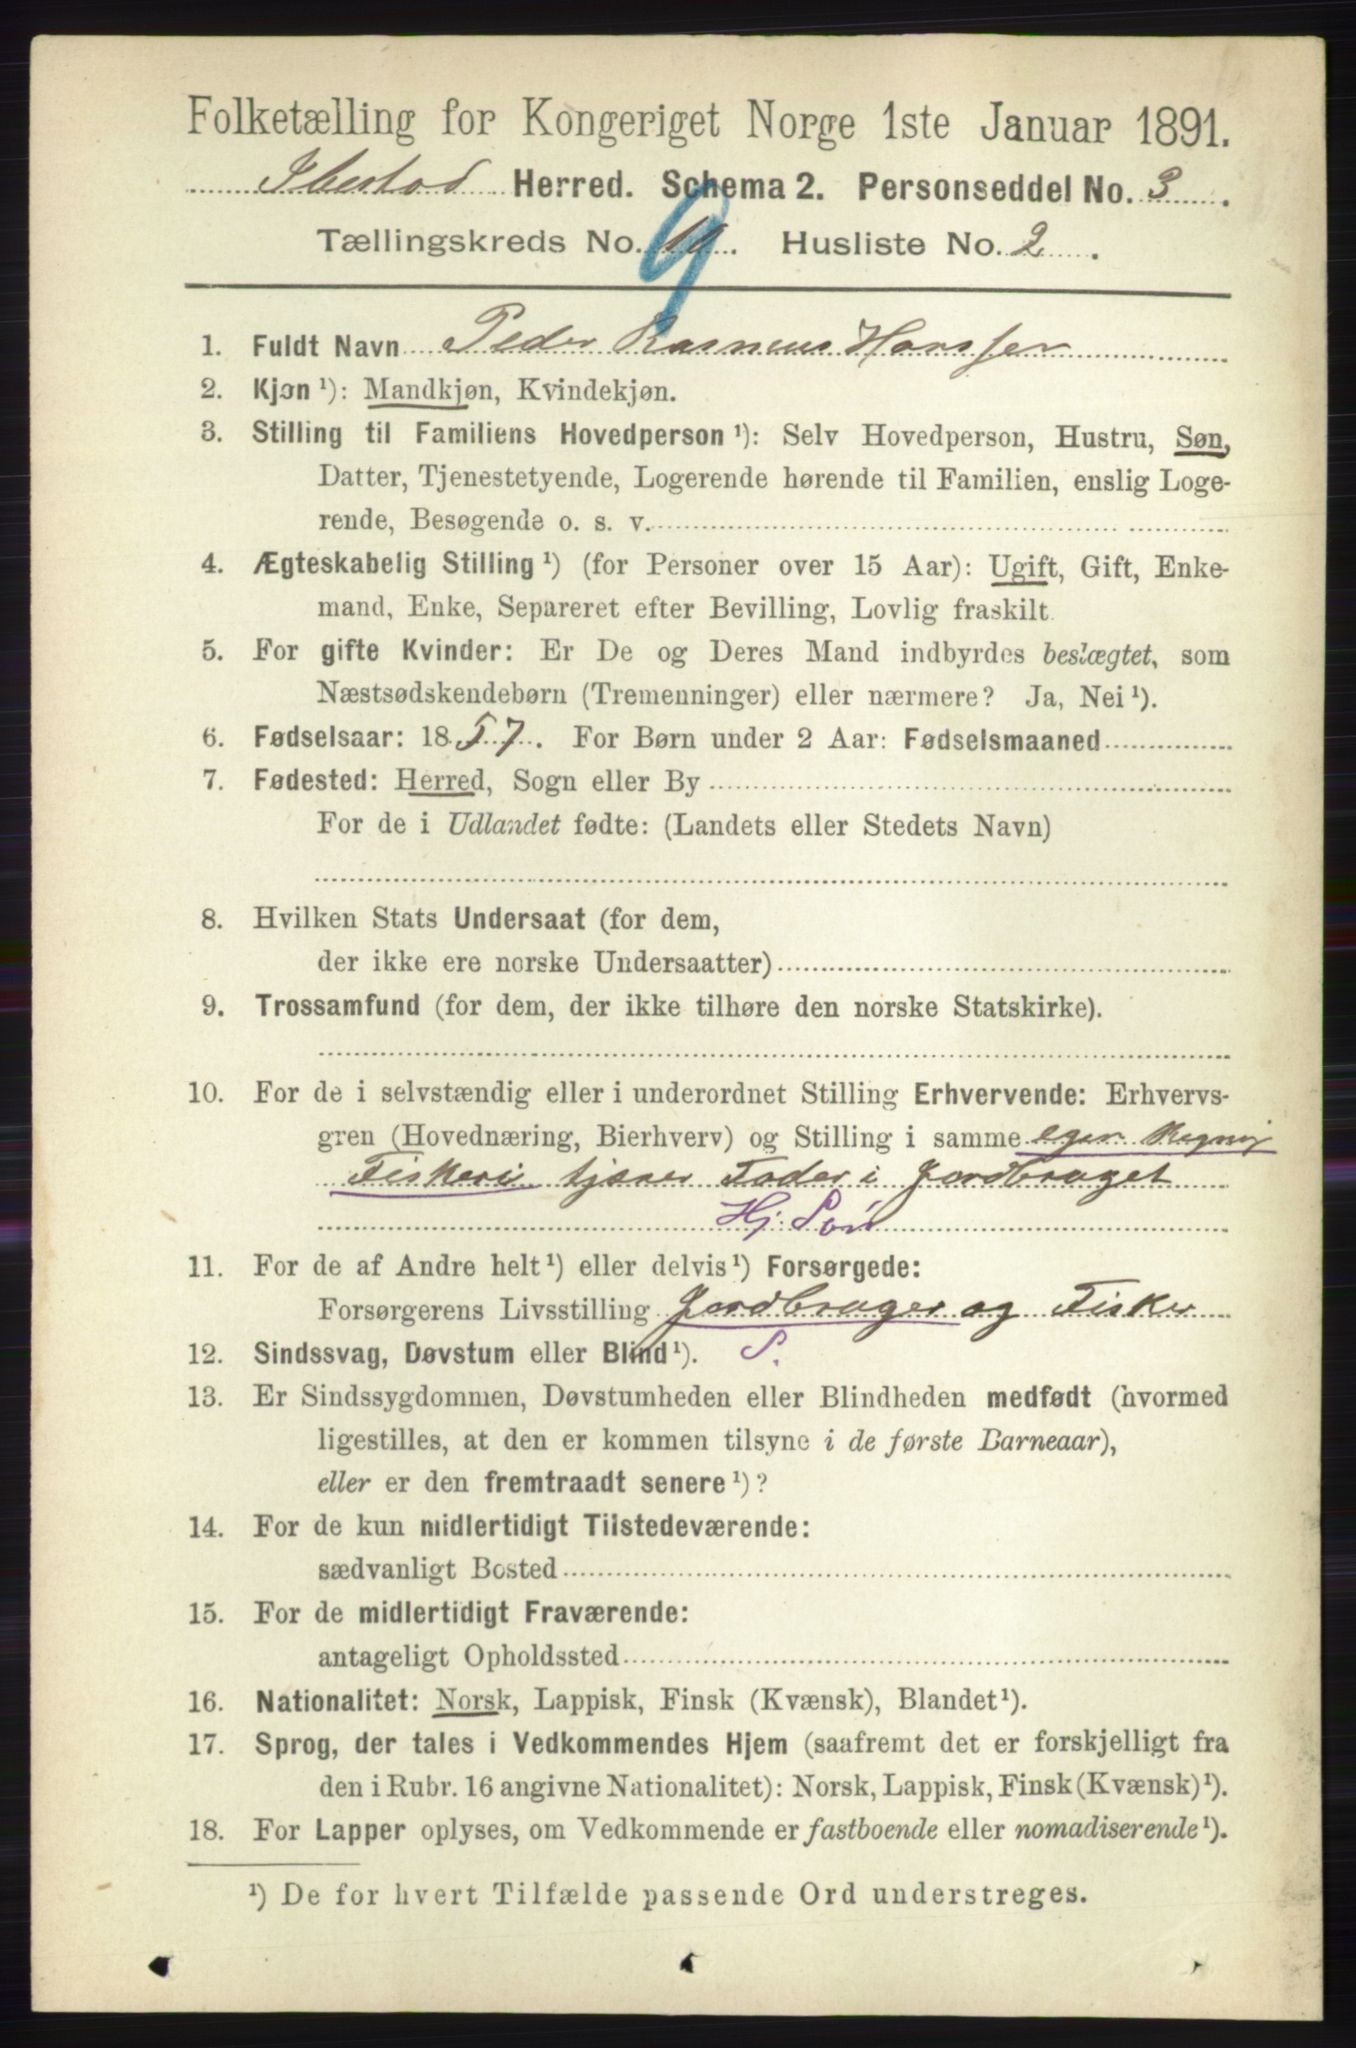 Folketælling for Kongeriget Norge 1ste Januar 1891.
Ibestad Herred. Schema 2. Personseddel No. 3.
Tællingskreds No. 10. Husliste No. 2.
9
1. Fuldt Navn Peder Rasmus Hanssen
2. Kjøn ¹): Mandkjøn, Kvindekjøn.
3. Stilling til Familiens Hovedperson ¹): Selv Hovedperson, Hustru, Søn,
Datter, Tjenestetyende, Logerende hørende til Familien, enslig Loge-
rende, Besøgende o. s. v.
4. Ægteskabelig Stilling ¹) (for Personer over 15 Aar): Ugift, Gift, Enke-
mand, Enke, Separeret efter Bevilling, Lovlig fraskilt.
5. For gifte Kvinder: Er De og Deres Mand indbyrdes beslægtet, som
Næstsødskendebørn (Tremenninger) eller nærmere? Ja, Nei ¹).
6. Fødselsaar: 1857. For Børn under 2 Aar: Fødselsmaaned
7. Fødested: Herred, Sogn eller By
For de i Udlandet fødte: (Landets eller Stedets Navn)
8. Hvilken Stats Undersaat (for dem,
der ikke ere norske Undersaatter)
9. Trossamfund (for dem, der ikke tilhøre den norske Statskirke).
10. For de i selvstændig eller i underordnet Stilling Erhvervende: Erhvervs-
gren (Hovednæring, Bierhverv) og Stilling i samme egen Regning
Fiskeri tjener Fader i Jordbruget
Hj. Søn
11. For de af Andre helt ¹) eller delvis ¹) Forsørgede:
Forsørgerens Livsstilling Jordbruger og Fisker
12. Sindssvag, Døvstum eller Blind ¹). S.
13. Er Sindssygdommen, Døvstumheden eller Blindheden medfødt (hvormed
ligestilles, at den er kommen tilsyne i de første Barneaar),
eller er den fremtraadt senere ¹)?
14. For de kun midlertidigt Tilstedeværende:
sædvanligt Bosted
15. For de midlertidigt Fraværende:
antageligt Opholdssted
16. Nationalitet: Norsk, Lappisk, Finsk (Kvænsk), Blandet ¹).
17. Sprog, der tales i Vedkommendes Hjem (saafremt det er forskjelligt fra
den i Rubr. 16 angivne Nationalitet): Norsk, Lappisk, Finsk (Kvænsk) ¹).
18. For Lapper oplyses, om Vedkommende er fastboende eller nomadiserende ¹).
¹) De for hvert Tilfælde passende Ord understreges.